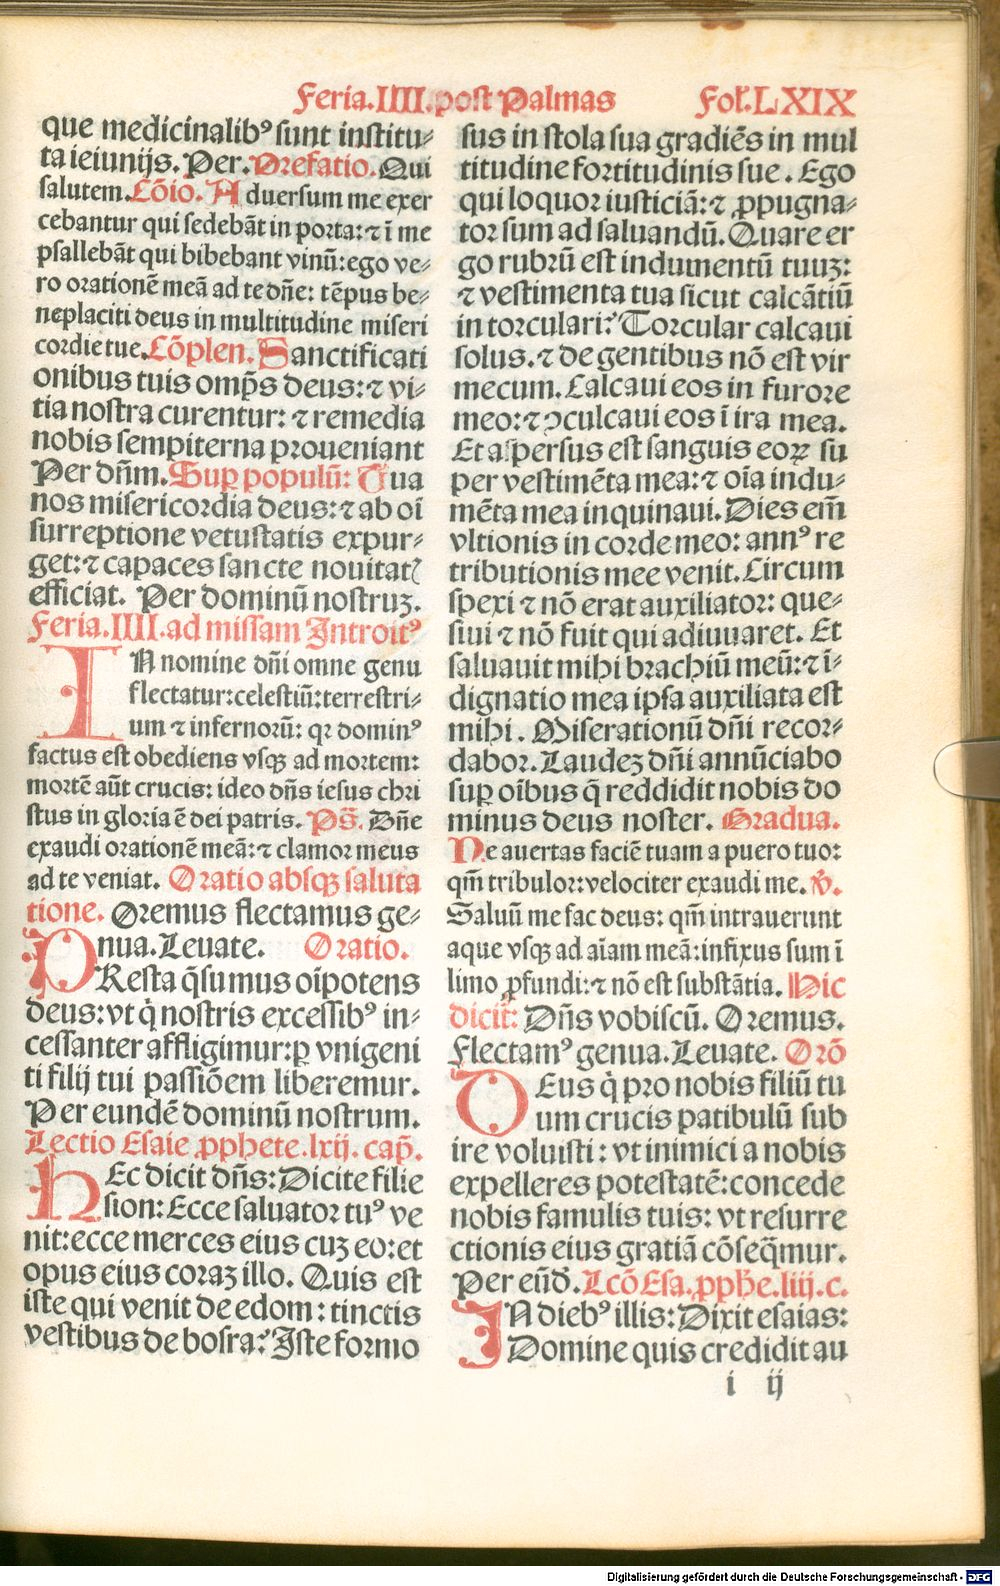 Feria.IIII.post Palmas Fol.LXIX
que medicinalibꝰ sunt institu⸗
ta ieiunijs. Per. Prefatio. Qui
salutem. Cōio. Aduersum me exer
cebantur qui sedebāt in porta: ⁊ ī me
psallebāt qui bibebant vinū: ego ve⸗
ro orationē meā ad te dñe: tēpus be⸗
neplaciti deus in multitudine miseri
cordie tue. Cōplen. Sanctificati
onibus tuis omp̄s deus: ⁊ vi⸗
tia nostra curentur: ⁊ remedia
nobis sempiterna proueniant
Per dñm. Suꝑ populū: Tua
nos misericordia deus: ⁊ ab oī
surreptione vetustatis expur⸗
get: ⁊ capaces sancte nouitatꝭ
efficiat. Per dominū nostruꝫ.
Feria.IIII.ad missam Introitꝰ
IN nomine dñi omne genu
flectatur: celestiū: terrestri⸗
um ⁊ infernorū: qꝛ dominꝰ
factus est obediens vsqꝫ ad mortem:
mortē aūt crucis: ideo dñs iesus chri
stus in gloria ē dei patris. Ps̄. Dñe
exaudi orationē meā: ⁊ clamor meus
ad te veniat. Oratio absqꝫ saluta
tione. Oremus flectamus ge⸗
nua. Leuate. Oratio.
PResta q̄sumus oīpotens
deus: vt q̇ nostris excessibꝰ in⸗
cessanter affligimur: ꝑ vnigeni
ti filij tui passiōem liberemur.
Per eundē dominū nostrum.
Lectio Esaie ꝓphete.lxij. cap̄.
HEc dicit dñs: Dicite filie
sion: Ecce saluator tuꝰ ve
nit: ecce merces eius cuꝫ eo: et
opus eius coraꝫ illo. Quis est
iste qui venit de edom: tinctis
vestibus de bosra? Iste formo
sus in stola sua gradiēs in mul
titudine fortitudinis sue. Ego
qui loquor iusticiā: ⁊ ꝓpugna⸗
tor sum ad saluandū. Quare er
go rubrū est indumentū tuuꝫ:
⁊ vestimenta tua sicut calcātiū
in torculari? Torcular calcaui
solus. ⁊ de gentibus nō est vir
mecum. Calcaui eos in furore
meo: ⁊ ꝯculcaui eos ī ira mea.
Et aspersus est sanguis eoꝝ su
per vestimēta mea: ⁊ oīa indu⸗
mēta mea inquinaui. Dies em̄
vltionis in corde meo: annꝰ re
tributionis mee venit. Circum
spexi ⁊ nō erat auxiliator: que⸗
siui ⁊ nō fuit qui adiuuaret. Et
saluauit mihi brachiū meū: ⁊ ī⸗
dignatio mea ipsa auxiliata est
mihi. Miserationū dñi recor⸗
dabor. Laudeꝫ dñi annūciabo
suꝑ oībus q̄ reddidit nobis do
minus deus noster. Gradua.
Ne auertas faciē tuam a puero tuo:
qm̄ tribulor: velociter exaudi me. ℣.
Saluū me fac deus: qm̄ intrauerunt
aque vsqꝫ ad aīam meā: infixus sum ī
limo ꝓfundi: ⁊ nō est substātia. Hic
dicit̄: Dñs vobiscū. Oremus.
Flectamꝰ genua. Leuate. Orō
DEus q̇ pro nobis filiū tu
um crucis patibulū sub
ire voluisti: vt inimici a nobis
expelleres potestatē: concede
nobis famulis tuis: vt resurre
ctionis eius gratiā cōseq̄mur.
Per eūd̄. Lcō Esa. ꝓph̄e. liij. c.
IN diebꝰ illis: Dixit esaias:
Domine quis credidit au
i ij
Digitalisierung gefördert durch die Deutsche Forschungsgemeinschaft - DFG